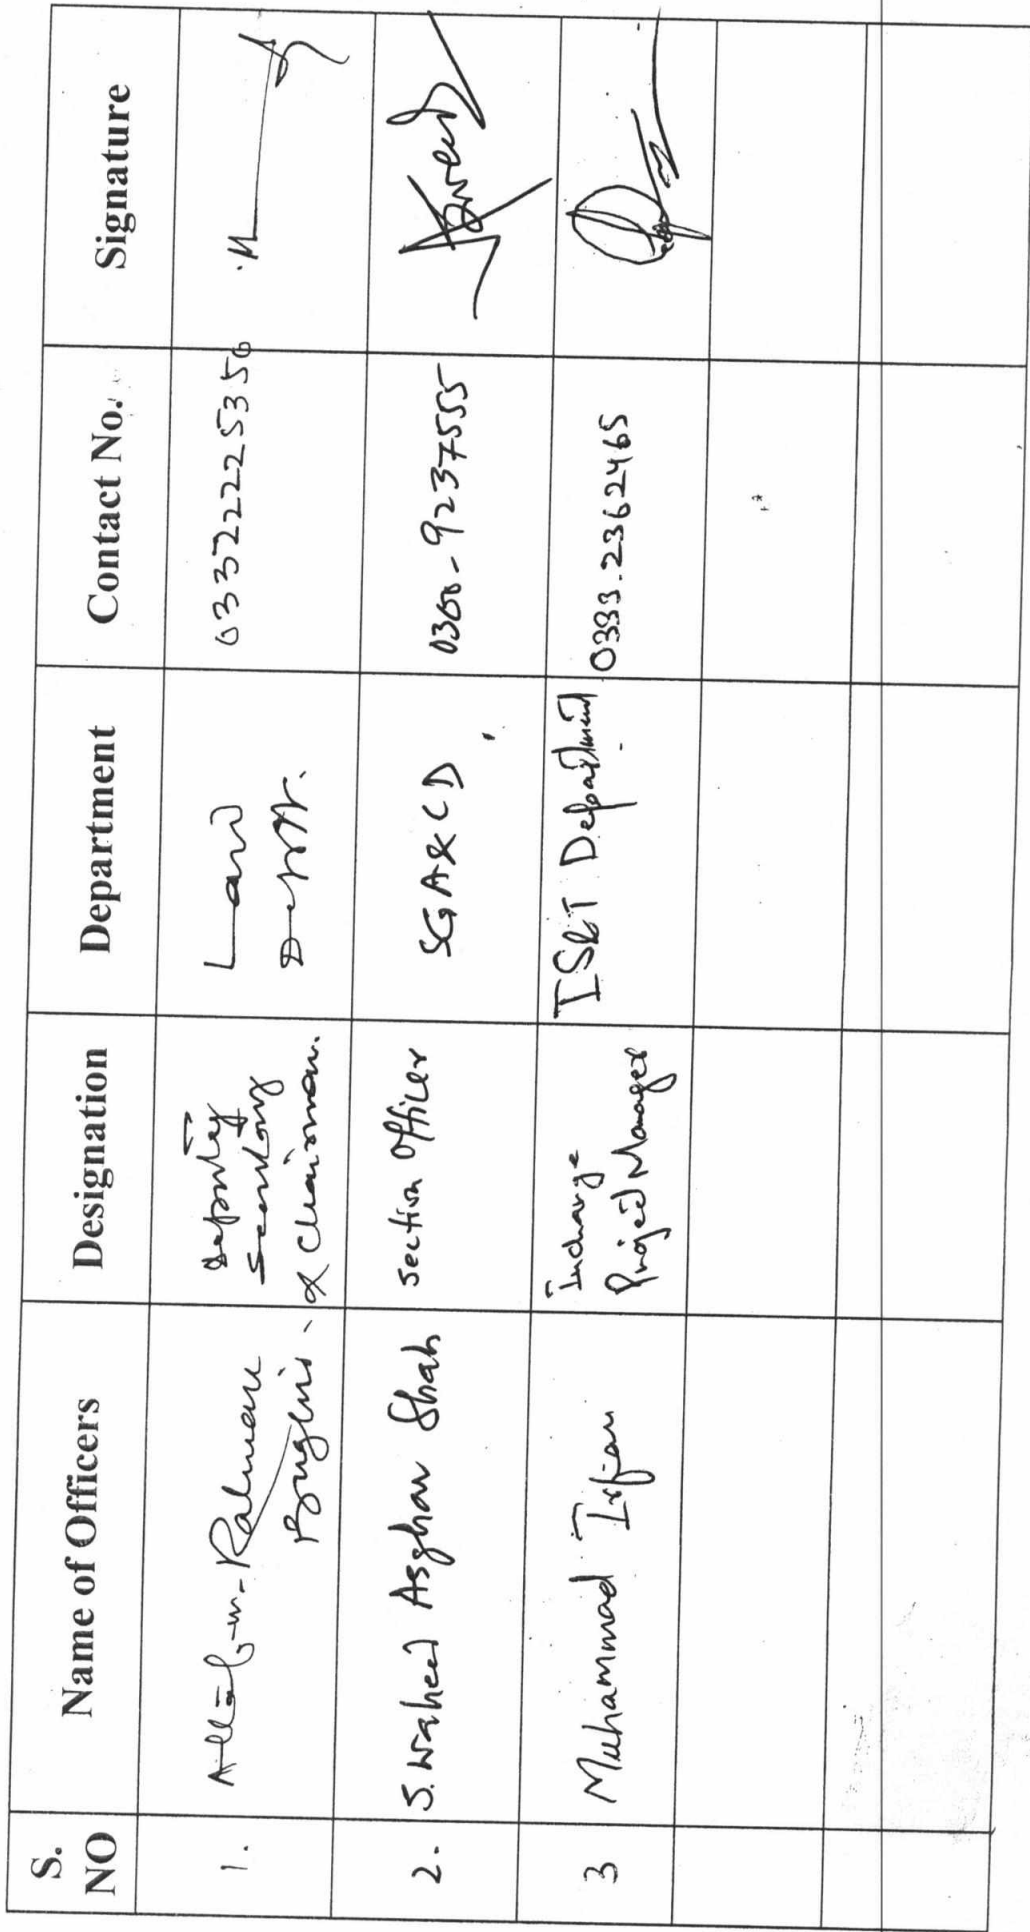 S. NO
Name of Officers
Designation
Department
Contact No.
Signature
1.
Rahman
Bughio -
Deputy
Secretary
& Chairman.
Land
Deptt.
03322225350
2.
S. Waheed Asghar Shah
Section Officer
SGA&CD
0300-9237555
3
Muhammad Irfan
Incharge
Project Manager
IS&T Department
0333-2362465